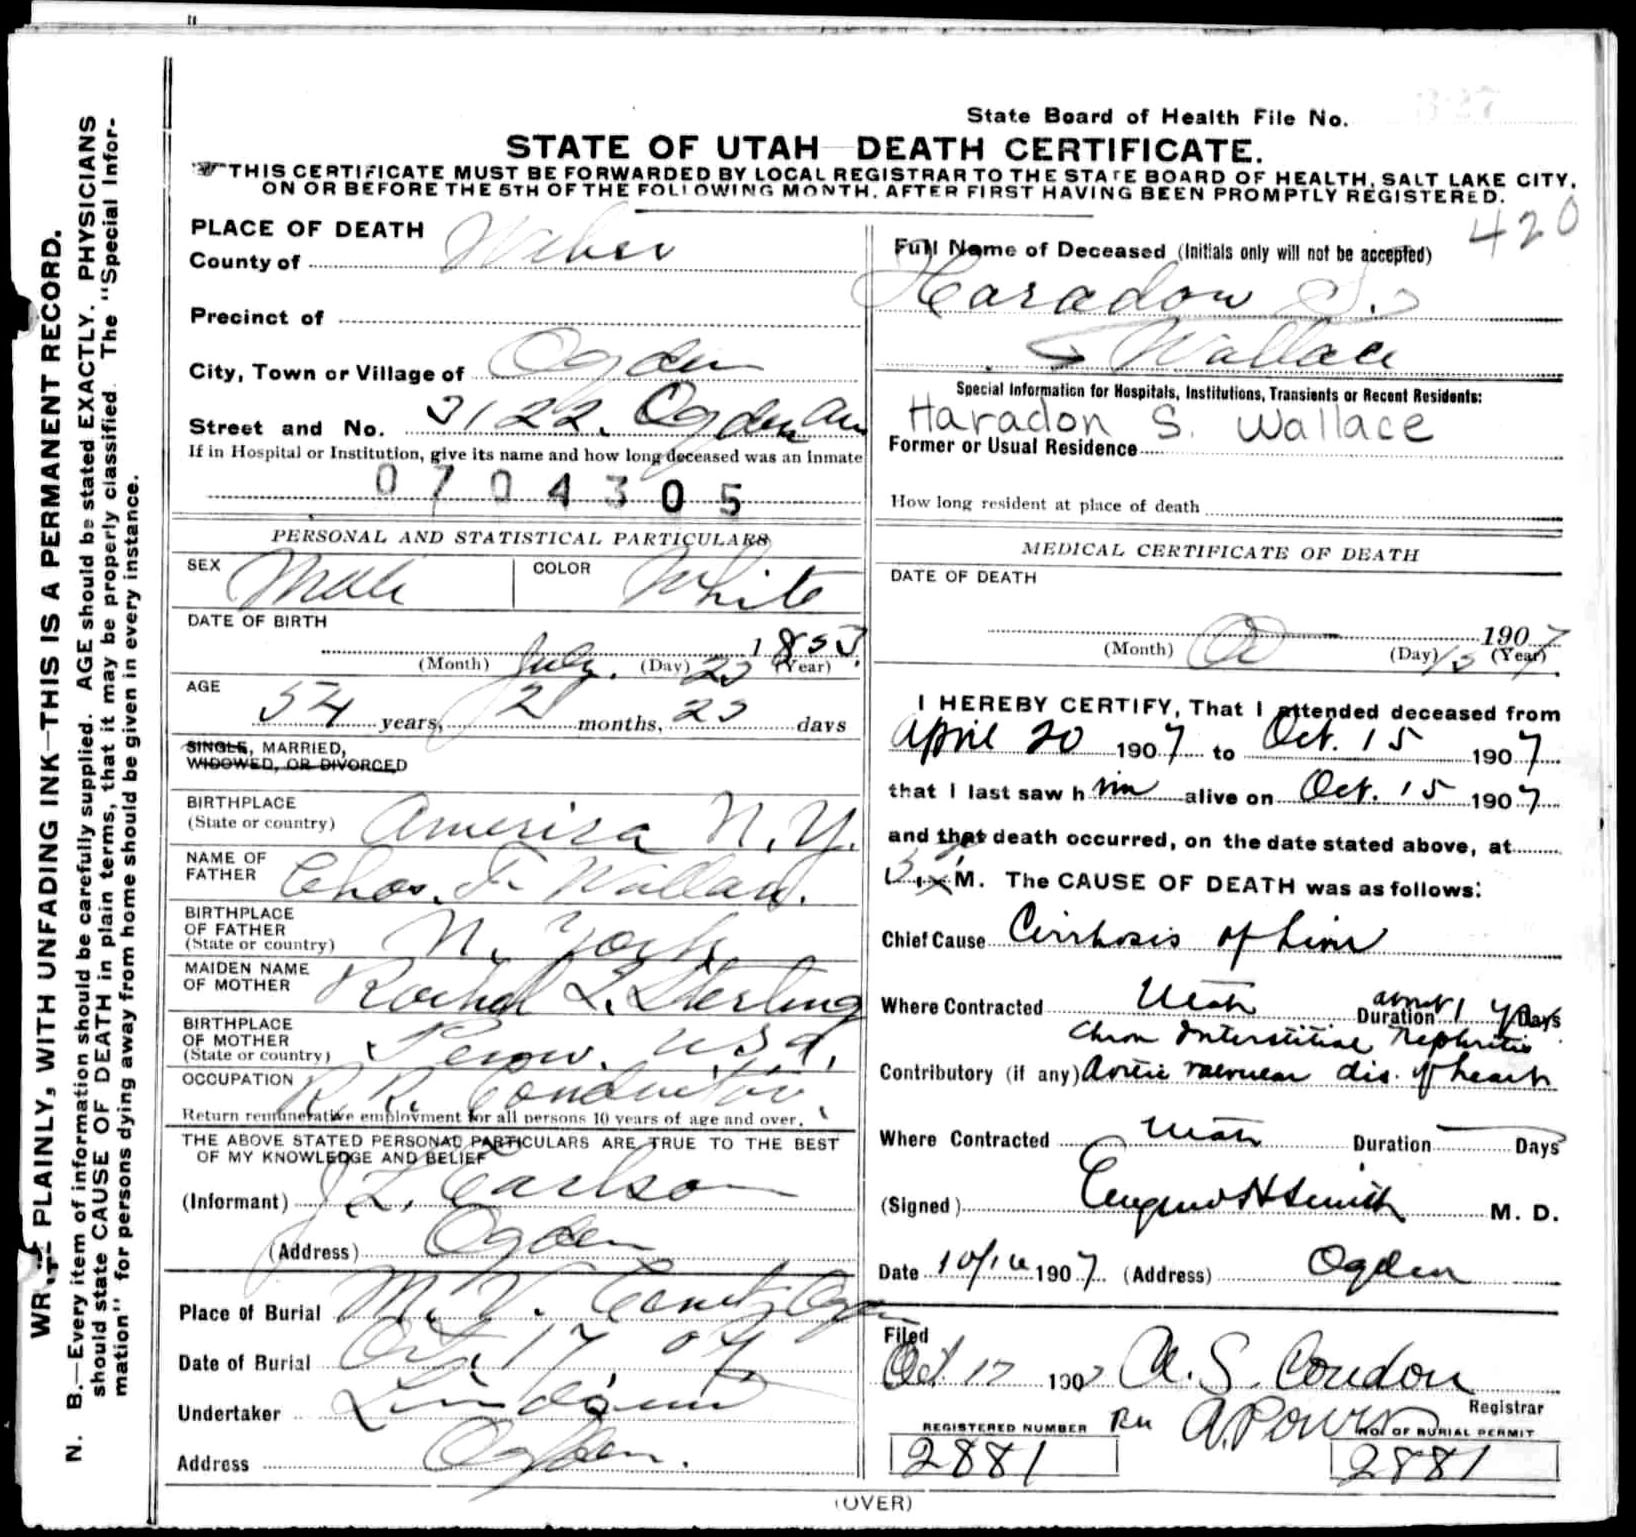 State Board of Health File No.
STATE OF UTAH DEATH CERTIFICATE.
THIS CERTIFICATE MUST BE FORWARDED BY LOCAL REGISTRAR TO THE STATE BOARD OF HEALTH, SALT LAKE CITY,
ON OR BEFORE THE 5TH OF THE FOLLOWING MONTH, AFTER FIRST HAVING BEEN PROMPTLY REGISTERED.
420
WRITE PLAINLY, WITH UNFADING INK—THIS IS A PERMANENT RECORD.
N. B.—Every item of information should be carefully supplied. AGE should be stated EXACTLY. PHYSICIANS
should state CAUSE OF DEATH in plain terms, that it may be properly classified. The "Special Infor-
mation" for persons dying away from home should be given in every instance.
PLACE OF DEATH
County of Weber
Precinct of
City, Town or Village of Ogden
Street and No. 3122. Ogden Ave
If in Hospital or Institution, give its name and how long deceased was an inmate
0704305
PERSONAL AND STATISTICAL PARTICULARS
SEX Male COLOR White
DATE OF BIRTH
(Month) July. (Day) 23 1853. (Year)
AGE
54 years, 2 months, 23 days
SINGLE, MARRIED,
WIDOWED, OR DIVORCED
BIRTHPLACE
(State or country) America N.Y.
NAME OF
FATHER Chas. F. Wallace.
BIRTHPLACE
OF FATHER
(State or country) N. York
MAIDEN NAME
OF MOTHER Rachel L. Sterling
BIRTHPLACE
OF MOTHER
(State or country) Penn. U S A.
OCCUPATION R. R. Conductor
Return remunerative employment for all persons 10 years of age and over.
THE ABOVE STATED PERSONAL PARTICULARS ARE TRUE TO THE BEST
OF MY KNOWLEDGE AND BELIEF
(Informant) J. L. Carlson
(Address) Ogden
Place of Burial
Date of Burial Oct. 17 07
Undertaker Lindquist
Address Ogden.
Full Name of Deceased (Initials only will not be accepted)
Haradon S.
Wallace
Special Information for Hospitals, Institutions, Transients or Recent Residents:
Haradon S. Wallace
Former or Usual Residence
How long resident at place of death
MEDICAL CERTIFICATE OF DEATH
DATE OF DEATH
(Month) Oct (Day) 15 1907 (Year)
I HEREBY CERTIFY, That I attended deceased from
April 20 1907 to Oct. 15 1907
that I last saw him alive on Oct. 15 1907
and that death occurred, on the date stated above, at
M. The CAUSE OF DEATH was as follows:
Chief Cause Cirrhosis of Liver
Where Contracted Utah Duration about 1 y Days
Chron Interstitial Nephritis
Contributory (if any) Aortic valvular dis. of heart
Where Contracted Utah Duration Days
(Signed) Eugene H Smith M. D.
Date 10/16 1907 (Address) Ogden
Filed
Oct. 17 1907 A. S. Condon
Registrar
A. Powers
REGISTERED NUMBER NO. OF BURIAL PERMIT
2881 2881
(OVER)